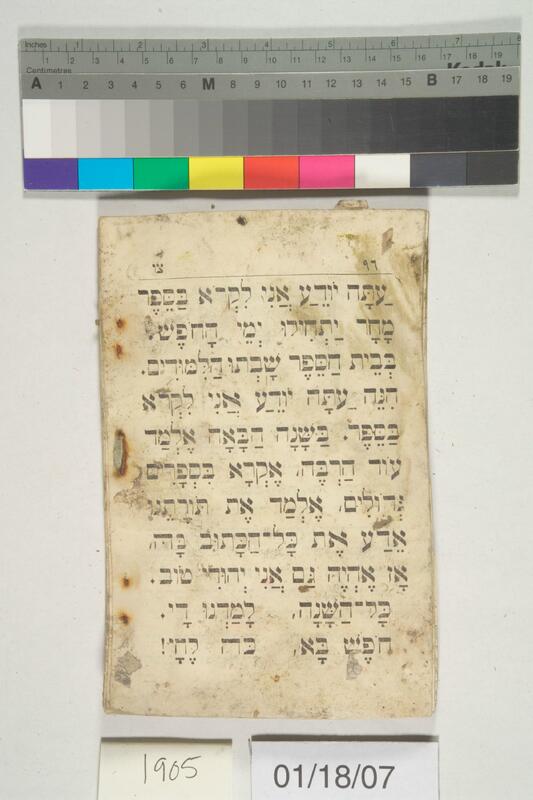 Inches 1 2 3 4 5 6 7 8
1 2 3 4 5 6 7 8 9 10 11 12 13 14 15 16 17 18 19
Centimetres
A 1 2 3 4 5 6 M 8 9 10 11 12 13 14 15 B 17 18 19
עַתָּה יוֹדֵעַ אֲנִי לִקְרֹא בַּסֵּפֶר
מָחָר יַתְחִילוּ יְמֵי הַחֹפֶשׁ,
בְּבֵית הַסֵּפֶר שָׁבְתוּ הַלִּמּוּדִים.
הִנֵּה עַתָּה יוֹדֵעַ אֲנִי לִקְרֹא
בַּסֵּפֶר. בַּשָּׁנָה הַבָּאָה אֶלְמַד
עוֹד הַרְבֵּה, אֶקְרָא בִּסְפָרִים
גְּדוֹלִים, אֶלְמַד אֶת תּוֹרָתֵנוּ
אֵדַע אֶת כָּל־הַכָּתוּב בָּהּ,
אָז אֶהְיֶה גַם אֲנִי יְהוּדִי טוֹב.
כָּל־הַשָּׁנָה, לָמַדְנוּ דָי.
חֹפֶשׁ בָּא, כֹּה לֶחָי!
1905
01/18/07